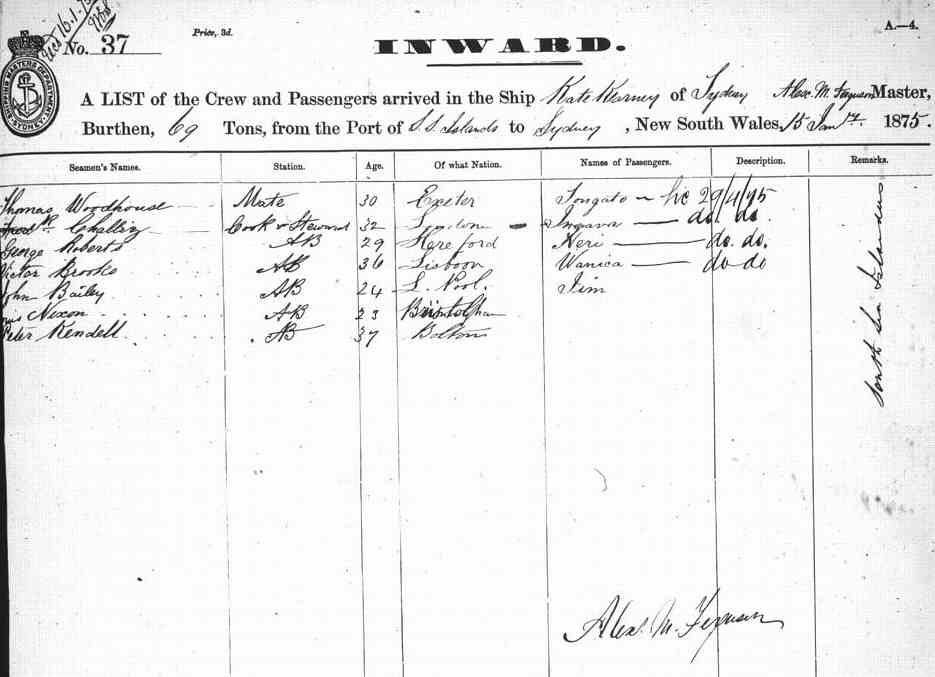 No. 37
Price, 3d.
INWARD.
A.—4.
SHIPPING MASTERS DEPARTMENT SYDNEY
A LIST of the Crew and Passengers arrived in the Ship Kate Kearney of Sydney Alex. M. Ferguson Master,
Burthen, 69 Tons, from the Port of S.S. Islands to Sydney, New South Wales, 15 Jany. 1875.
Seamen's Names. Station. Age. Of what Nation. Names of Passengers. Description. Remarks.
Thomas Woodhouse Mate 30 Exeter Tongato 29/4/75
Challis Cook & Steward 32 London do. do.
George Roberts AB 29 Hereford Neri do. do.
Victor Brooks AB 36 Lisboon Wanica do do
John Bailey AB 24 L. Pool. Jim
Nixon AB 23
Peter Kendell AB 37 Bolton
South Sea Islanders
Alex. M. Ferguson